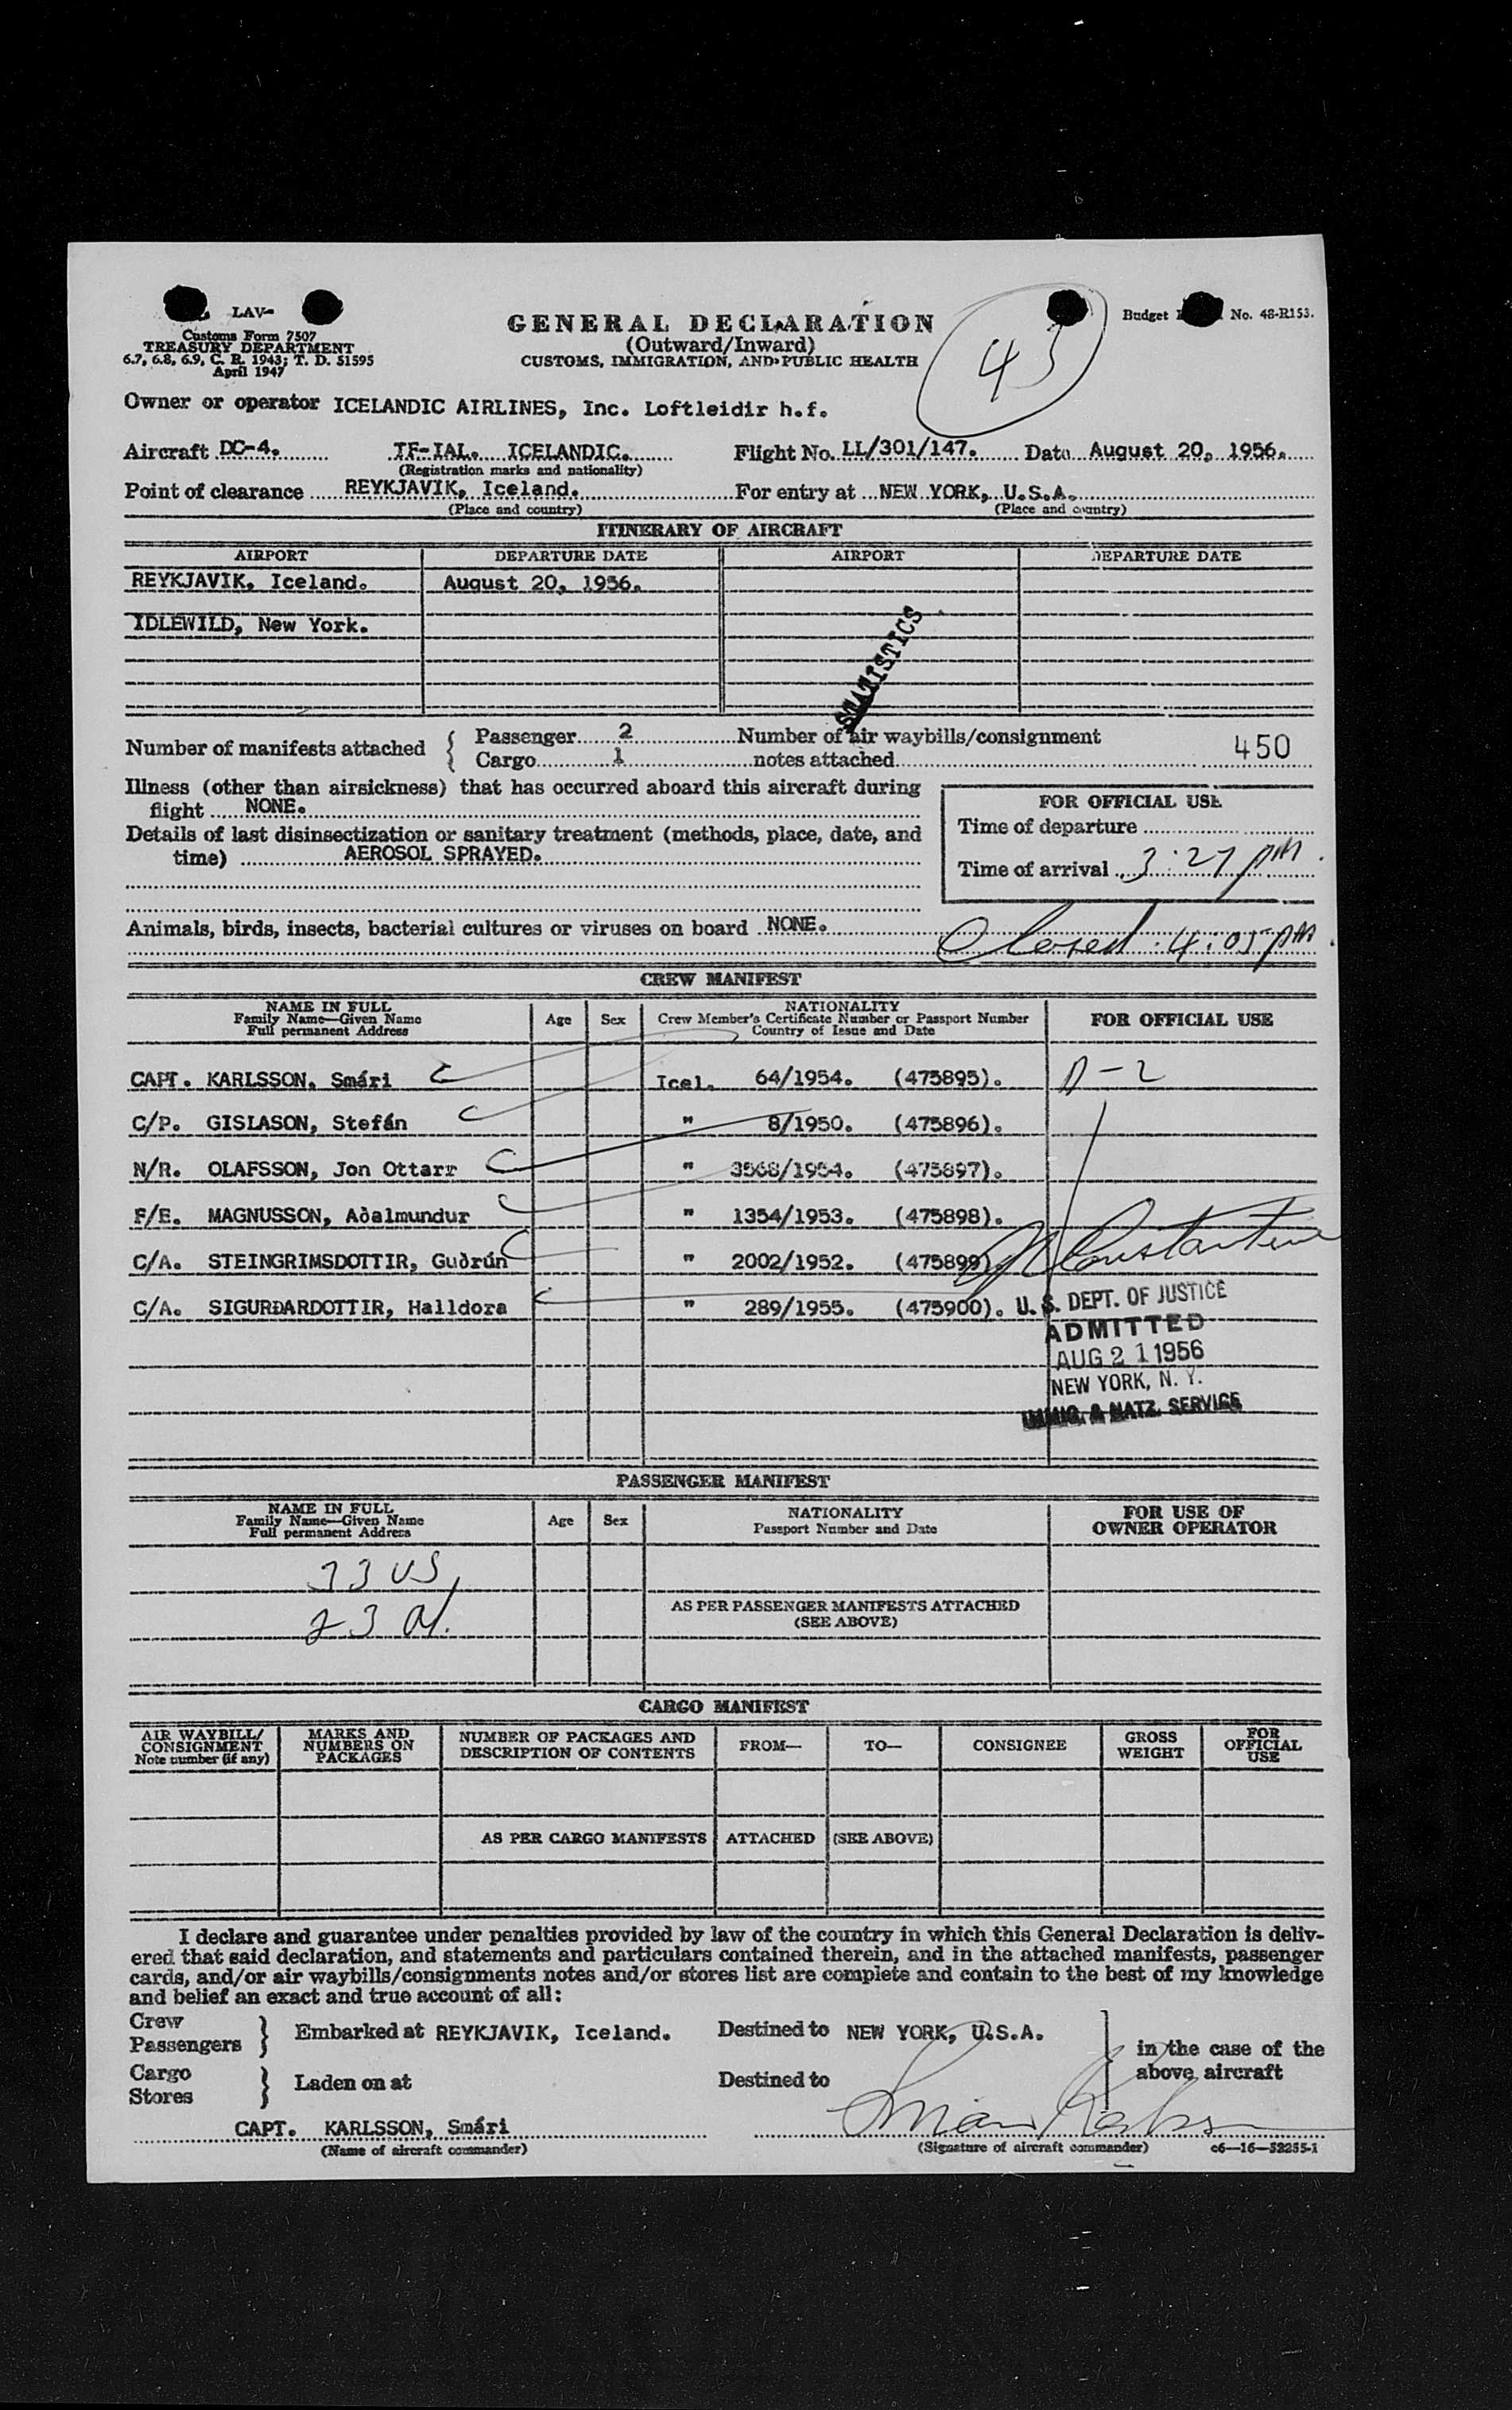 LAV-
Customs Form 7507
TREASURY DEPARTMENT
6.7, 6.8, 6.9, C. R. 1943; T. D. 51595
April 1947
GENERAL DECLARATION
(Outward/Inward)
CUSTOMS, IMMIGRATION, AND PUBLIC HEALTH
43
Budget No. 48-R153.
Owner or operator ICELANDIC AIRLINES, Inc. Loftleidir h.f.
Aircraft DC-4. TF-IAL. ICELANDIC. Flight No. LL/301/147. Date August 20, 1956.
(Registration marks and nationality)
Point of clearance REYKJAVIK, Iceland. For entry at NEW YORK, U.S.A.
(Place and country) (Place and country)
ITINERARY OF AIRCRAFT
AIRPORT DEPARTURE DATE AIRPORT DEPARTURE DATE
REYKJAVIK, Iceland. August 20, 1956.
IDLEWILD, New York.
STATISTICS
Number of manifests attached { Passenger 2 Number of air waybills/consignment
Cargo 1 notes attached 450
Illness (other than airsickness) that has occurred aboard this aircraft during
flight NONE.
Details of last disinsectization or sanitary treatment (methods, place, date, and
time) AEROSOL SPRAYED.
FOR OFFICIAL USE
Time of departure
Time of arrival 3:27 PM.
Animals, birds, insects, bacterial cultures or viruses on board NONE.
Closed 4:05 PM.
CREW MANIFEST
NAME IN FULL
Family Name—Given Name
Full permanent Address
Age Sex
NATIONALITY
Crew Member's Certificate Number or Passport Number
Country of Issue and Date
FOR OFFICIAL USE
CAPT. KARLSSON, Smári Icel. 64/1954. (475895). D-2
C/P. GISLASON, Stefán " 8/1950. (475896).
N/R. OLAFSSON, Jon Ottarr " 3568/1954. (475897).
F/E. MAGNUSSON, Aðalmundur " 1354/1953. (475898).
C/A. STEINGRIMSDOTTIR, Guðrún " 2002/1952. (475899)
Constantine
C/A. SIGURÐARDOTTIR, Halldora " 289/1955. (475900).
U. S. DEPT. OF JUSTICE
ADMITTED
AUG 21 1956
NEW YORK, N. Y.
IMMIG. & NATZ. SERVICE
PASSENGER MANIFEST
NAME IN FULL
Family Name—Given Name
Full permanent Address
Age Sex
NATIONALITY
Passport Number and Date
FOR USE OF
OWNER OPERATOR
33 US
23
AS PER PASSENGER MANIFESTS ATTACHED
(SEE ABOVE)
CARGO MANIFEST
AIR WAYBILL/
CONSIGNMENT
Note number (if any)
MARKS AND
NUMBERS ON
PACKAGES
NUMBER OF PACKAGES AND
DESCRIPTION OF CONTENTS
FROM— TO— CONSIGNEE
GROSS
WEIGHT
FOR
OFFICIAL
USE
AS PER CARGO MANIFESTS ATTACHED (SEE ABOVE)
I declare and guarantee under penalties provided by law of the country in which this General Declaration is deliv-
ered that said declaration, and statements and particulars contained therein, and in the attached manifests, passenger
cards, and/or air waybills/consignments notes and/or stores list are complete and contain to the best of my knowledge
and belief an exact and true account of all:
Crew
Passengers } Embarked at REYKJAVIK, Iceland. Destined to NEW YORK, U.S.A.
Cargo
Stores } Laden on at Destined to
in the case of the
above aircraft
CAPT. KARLSSON, Smári
(Name of aircraft commander)
Smári Karlsson
(Signature of aircraft commander) c6—16—52255-1